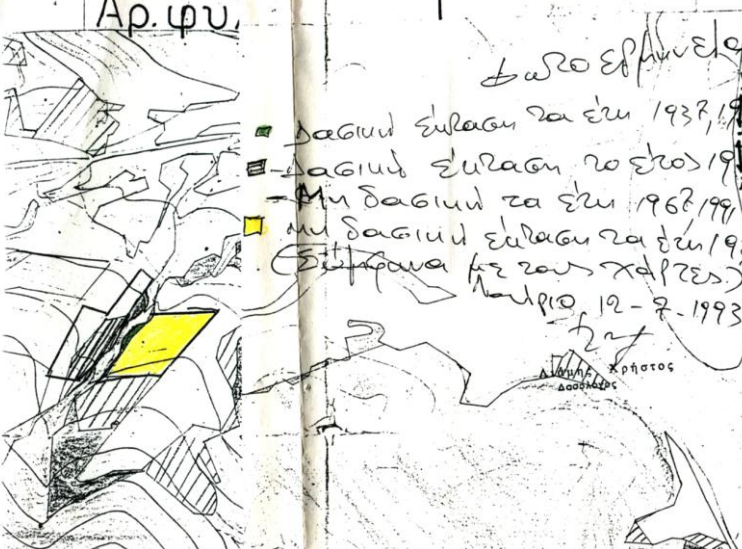 Αρ. φυ.
Φωτοερμηνεία
Δασική έκταση τα έτη 1937, 19
- Δασική έκταση το έτος 19
- Μη δασική τα έτη 1967, 199
μη δασική έκταση τα έτη 19
(Σύμφωνα με τους χάρτες)
Λαύριο 12-7-1993
Χρήστος
Δασολόγος